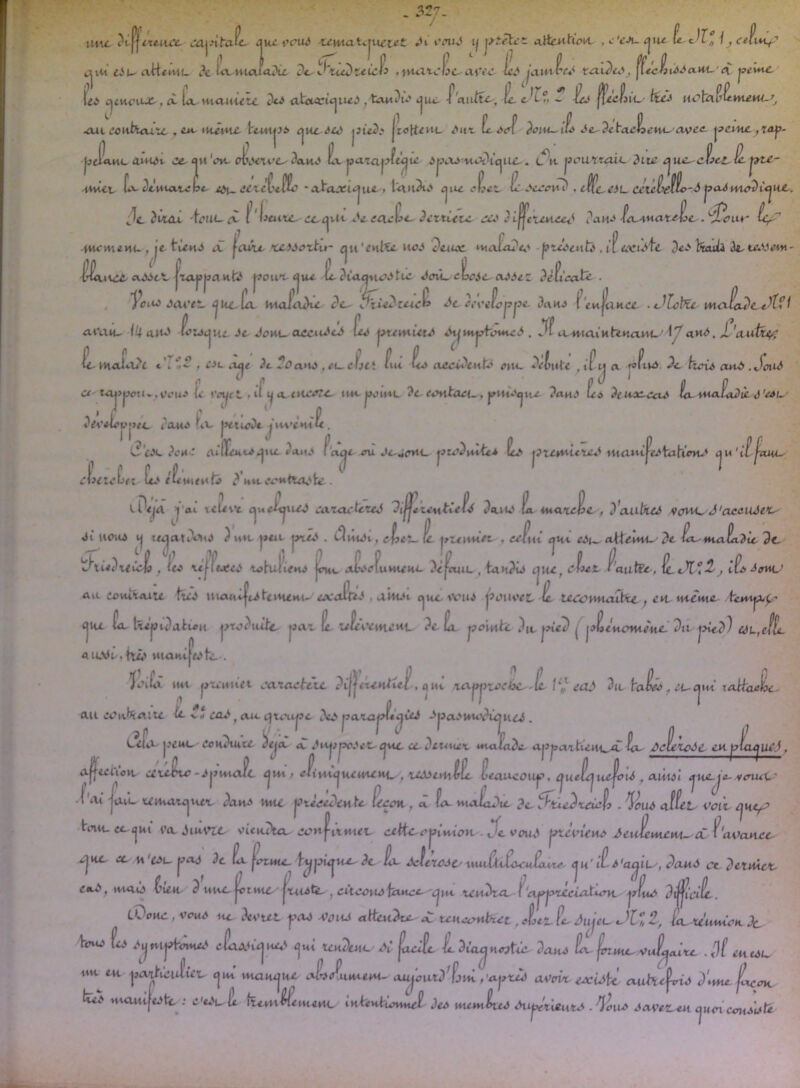 - 327.
une différence capitale que vous remarquerez si vous y prêtez attention, c'est que le N° 1, celui
qui est atteint de la maladie de Friedreich, marche avec les jambes raides, fléchissant à peine
les genoux, à la manière des ataxiques, tandis que l'autre, le N° 2 les fléchit très notablement,
au contraire, en même temps que ses pieds frottent sur le sol dont ils se détachent avec peine, rap-
pelant ainsi ce qu'on observe dans la paraplégie spasmodique. On pourrait dire que chez le pre-
mier la démarche est cérébello-ataxique, tandis que chez le second, elle est cérébello-spasmodique.
Je dirai tout à l'heure ce qui se cache derrière ces différences dans la marche. Pour le
moment, je tiens à faire ressortir qu'entre nos deux malades présents, il existe des traits de ressem-
blance assez frappants pour que le diagnostic soit chose assez délicate.
Vous savez que la maladie de Friedreich se développe dans l'enfance. Notre malade N° 1
avait 14 ans lorsque se sont accusés les premiers symptômes. Il a maintenant 17 ans. L'autre
le malade N° 2, est âgé de 20 ans, et chez lui les accidents ont débuté, il y a plus de trois ans. Sous
ce rapport, vous le voyez, il y a encore un point de contact, puisque dans les deux cas la maladie s'est
développée dans la période juvénile.
C'est donc ailleurs que dans l'âge où se sont produites les premières manifestations qu'il faut
chercher les éléments d'un contraste.
Déjà j'ai relevé quelques caractères différentiels dans la marche, d'autres vont s'accuser
si nous y regardons d'un peu près. Ainsi, chez le premier, celui qui est atteint de la maladie de
Friedreich, les réflexes rotuliens font absolument défaut, tandis que, chez l'autre, le N° 2, ils sont
au contraire très manifestement exaltés, ainsi que vous pouvez le reconnaître, en même temps
que la trépidation produite par le relèvement de la pointe du pied (phénomène du pied) est, elle
aussi, très manifeste.
Voilà un premier caractère différentiel, qui rapproche le 1er cas du tabes, et qui rattache
au contraire le 2e cas, au groupe des paraplégies spasmodiques.
Cela peut conduire déjà à supposer que ce dernier malade appartient à la sclérose en plaques,
affection cérébro-spinale qui, cliniquement, ressemble beaucoup, quelquefois, ainsi que je vous
l'ai fait remarquer dans une précédente leçon, à la maladie de Friedreich. Vous allez voir que
tout ce qui va suivre viendra confirmer cette opinion. Je vous préviens seulement à l'avance
que ce n'est pas de la forme typique de la sclérose multiloculaire qu'il s'agit, dans ce dernier
cas, mais bien d'une forme fruste, circonstance qui rendra l'appréciation plus difficile.
Donc, vous ne devrez pas vous attendre à rencontrer, chez le sujet N° 2, la réunion de
tous les symptômes classiques qui rendent si facile le diagnostic dans la forme vulgaire. Il en est
un en particulier qui manque absolument aujourd'hui, après avoir existé autrefois d'une façon
très manifeste : c'est le tremblement intentionnel des membres supérieurs. Vous savez en quoi consiste